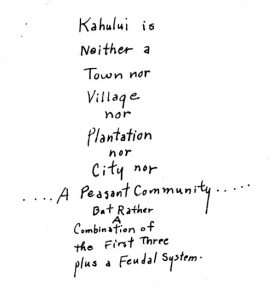 Kahului is
Neither a
Town nor
Village
nor
Plantation
nor
City nor
....A Peasant Community.....
But Rather
A
Combination of
the First Three
plus a Feudal System.